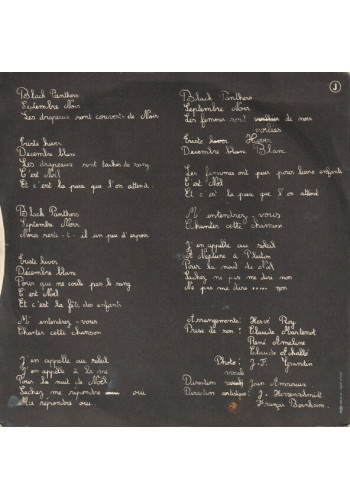 Black Panthers
Septembre Noir
Les drapeaux sont couverts de Noir
Triste hiver
Décembre blanc
Les drapeaux sont tachés de sang
C'est Noël
Et c'est la paix que l'on attend.
Black Panthers
Septembre Noir
Nous reste-t-il un peu d'espoir
Triste hiver
Décembre blanc
Pour que ne coule pas le sang
C'est Noël
Et c'est la fête des enfants
M'entendrez-vous
Chanter cette chanson
J'en appelle au soleil
J'en appelle à la vie
Pour la nuit de Noël
Sachez me répondre oui
Me répondre oui.
Black Panthers
Septembre Noir
des femmes sont de noir
voilées
Triste hiver Hiver
Décembre blanc Blanc
Les femmes ont peur pour leurs enfants
C'est Noël
Et c'est la paix que l'on attend
M'entendrez-vous
Chanter cette chanson
J'en appelle au soleil
A Neptune à Pluton
Pour la nuit de Noël
Sachez ne pas me dire non
Ne pas me dire ..... non
Arrangements: Hervé Roy
Prise de son: Claude Martenot
René Ameline
Claude
Photo: J.F.
Direction Jean
Direction artistique: J.
François Bernheim.